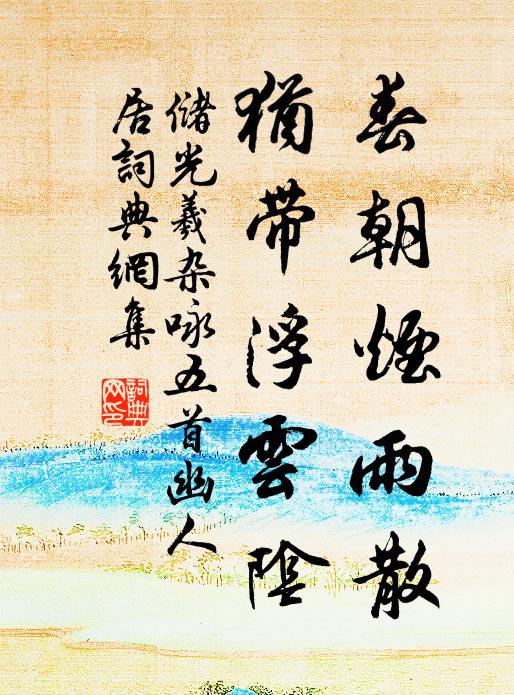 春朝煙雨散
猶帶浮雲陰
儲光羲杂咏五首幽人
居詞典網集
詞典
网印